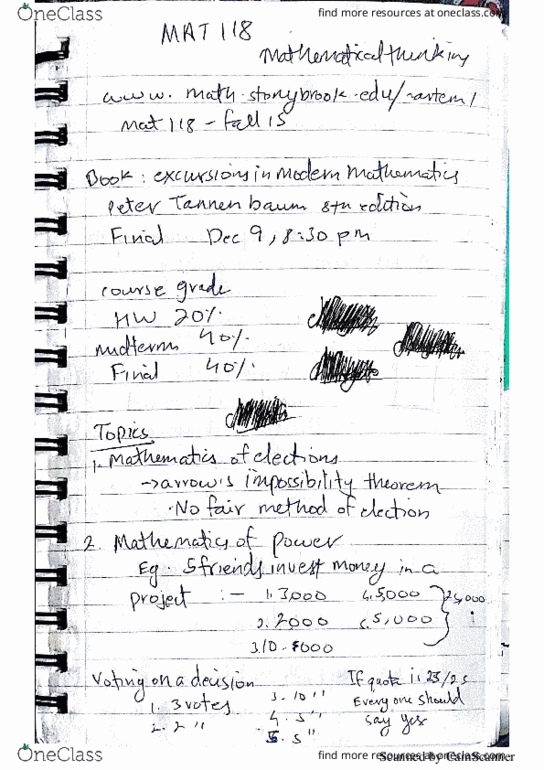 OneClass
find more resources at oneclass.com
MAT 118
Mathematical thinking
www. math.stonybrook.edu/~artem/
mat 118 - fall 15
Book : excursions in Modern Mathematics
Peter Tannenbaum 8th edition
Final Dec 9, 8:30 pm
course grade
HW 20%
midterm 40%
Final 40%
Topics
1. Mathematics of elections
→arrow's impossibility theorem
·No fair method of election
2. Mathematics of power
Eg. 5 friends invest money in a
project :- 1. 3,000 4. 5,000 25,000
2. 2000 5,000
3. 10
Voting on a decision If quota is 25/25
1. 3 votes 3. 10 " Every one should
2. 2 " 4. 5 " say yes
5. 5 "
OneClass
find more resources at oneclass.com
Scanned by CamScanner